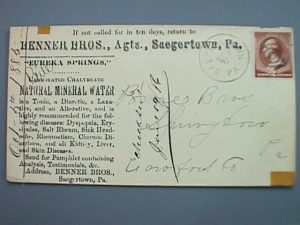 If not called for in ten days, return to
BENNER BROS., Agts., Saegertown, Pa.
"EUREKA SPRINGS,"
CARBONATED CHALYBEATE
NATURAL MINERAL WATER
is a Tonic, a Diuretic, a Laxa-
tive, and an Alterative, and is
highly recommended for the fol-
lowing diseases: Dyspepsia, Erys-
ipelas, Salt Rheum, Sick Head-
ache, Rheumatism, Chronic Di-
arrhœa, and all Kidney, Liver,
and Skin Diseases.
Send for Pamphlet containing
Analysis, Testimonials, &c.
Address, BENNER BROS.,
Saegertown, Pa.
Bros
Crawford Co
Pa